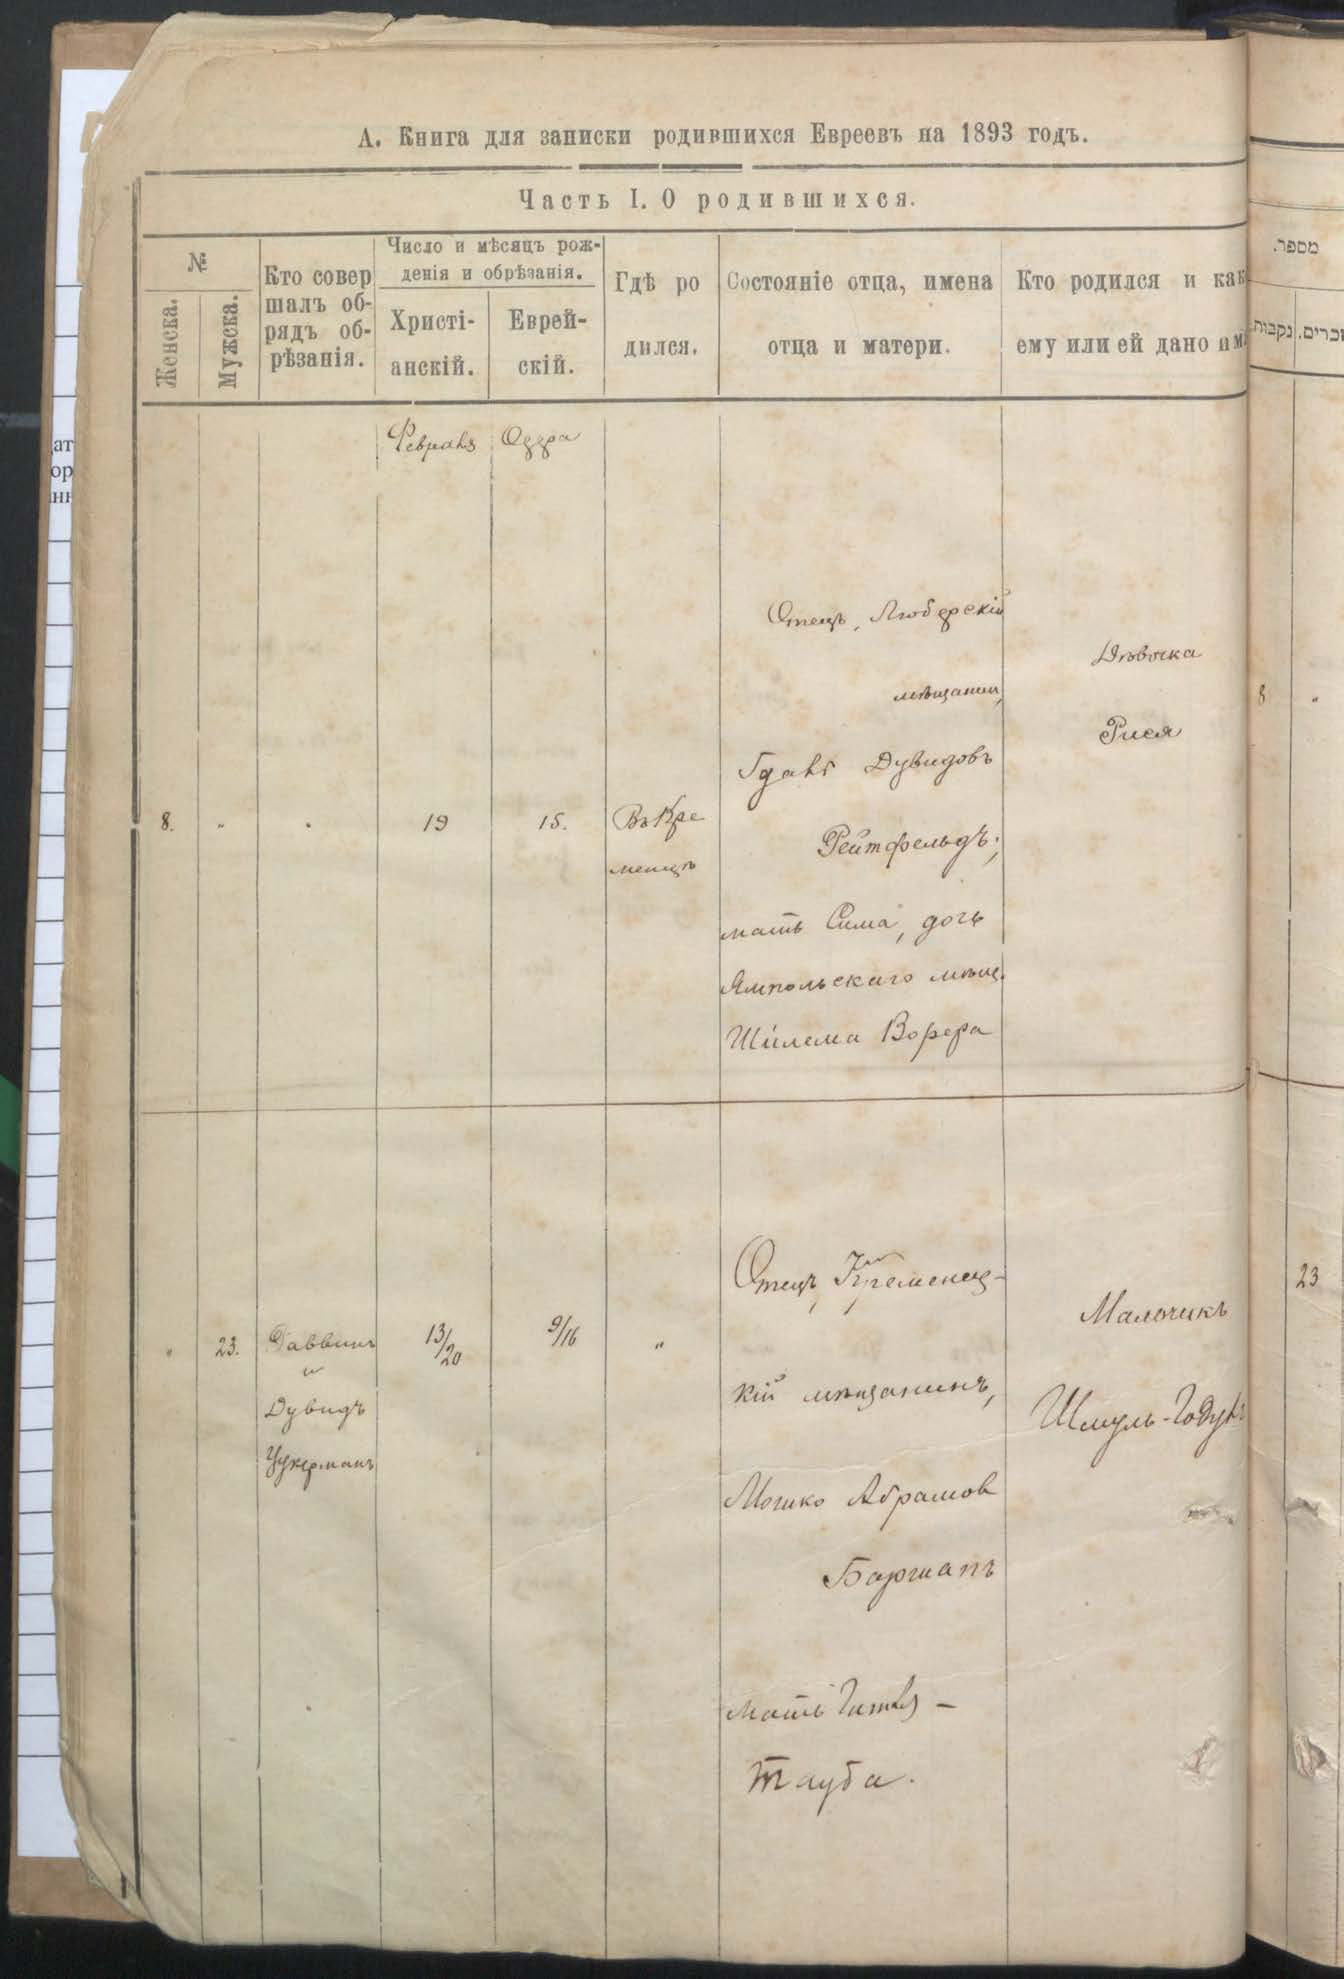 А. Книга для записки родившихся Евреевъ на 1893 годъ.
Часть I. О родившихся.
№
Женска.
Мужска.
Кто совер
шалъ об-
рядъ об-
рѣзанія.
Число и мѣсяцъ рож-
денія и обрѣзанія.
Христі-
анскій.
Еврей-
скій.
Гдѣ ро
дился.
Состояніе отца, имена
отца и матери.
Кто родился и как
ему или ей дано им
Февраля
Одера
8.
"
"
19
15.
Въ Кре
менцѣ
Отецъ,
мѣщанин,
Дувидовъ
Рейтфельдъ;
мать Сима, дочь
Ямпольскаго мѣщ.
Шилема Ворера
Дѣвочка
Рися
"
23.
Раввинъ
и
Дувидъ
Цукерманъ
13/20
9/16
"
Отецъ, Кременец-
кій мѣщанинъ,
Мошко Абрамов
Баршапъ
мать Гитля -
Тауба.
Мальчикъ
Шмуль-
מספר.
נקבות.
זכרים.
8
"
23